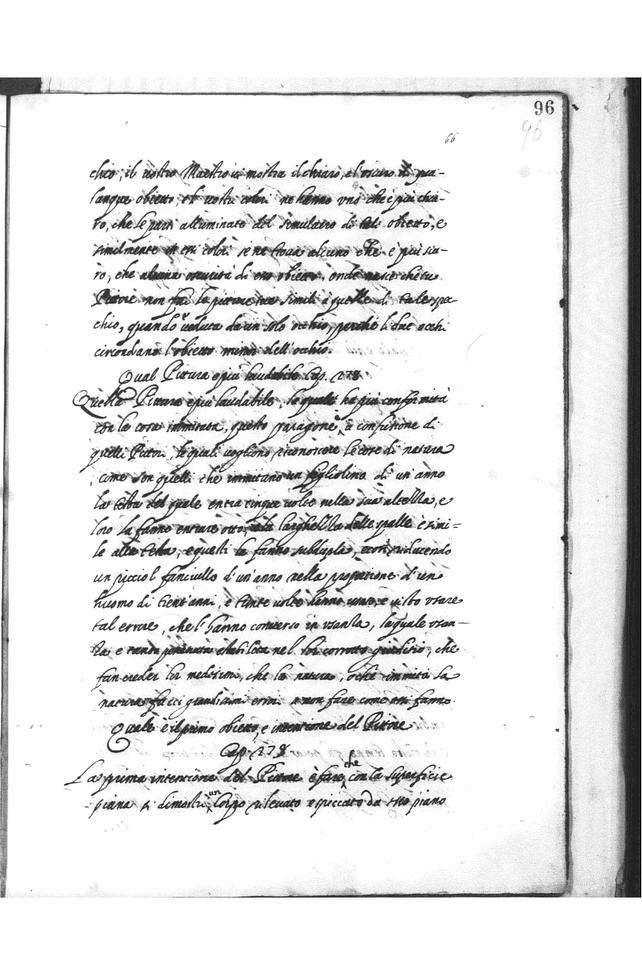 96
96
66
chio, il vostro Maestro vi mostra il chiaro, e l'oscuro di qua-
lunque obietto, et vostri colori ne hanno uno che è più chia-
ro, che le parti alluminate del simulacro di tal obietto, e
similmente in essi colori se ne trova alcuno che è più scu-
ro, che alcuna oscurità di esso obietto, onde nasce che tu
Pittore non fai le pitture tue simili a quelle di tale spe-
chio, quando è veduta da un solo occhio, perché li due occhi
circondano l'obietto minor dell'occhio.
Qual Pittura è più laudabile Cap. 278
Quella Pittura è più laudabile, la quale ha più conformità
con la cosa immitata, questo paragone, è a confusione di
quelli Pittori, le quali vogliono racconciare le cose di natura
, come son quelli che immitano un figliolino di un'anno
la testa del quale entra cinque volte nella sua altezza, e
loro la fanno entrare otto, e la larghezza delle spalle è simi-
le alla testa, e questi la fanno subdupla, riducendo
un picciol fanciullo d'un'anno nella proportione d'un
huomo di trent'anni, e tante volte hanno usato, e visto usare
tal errore, che l'hanno converso in usanza, la quale usan-
za è tanto penetrata e stabilita nel lor corrotto giuditio, che
fan creder lor medesimi, che la natura, o chi immita la
natura facci grandissimi errori a non fare come essi fanno
Quale è il primo obietto, e intentione del Pittore
Cap. 279
La prima intentione del Pittore è fare, che con la superficie
piana si dimostri un Corpo rilevato e spiccato da esso piano